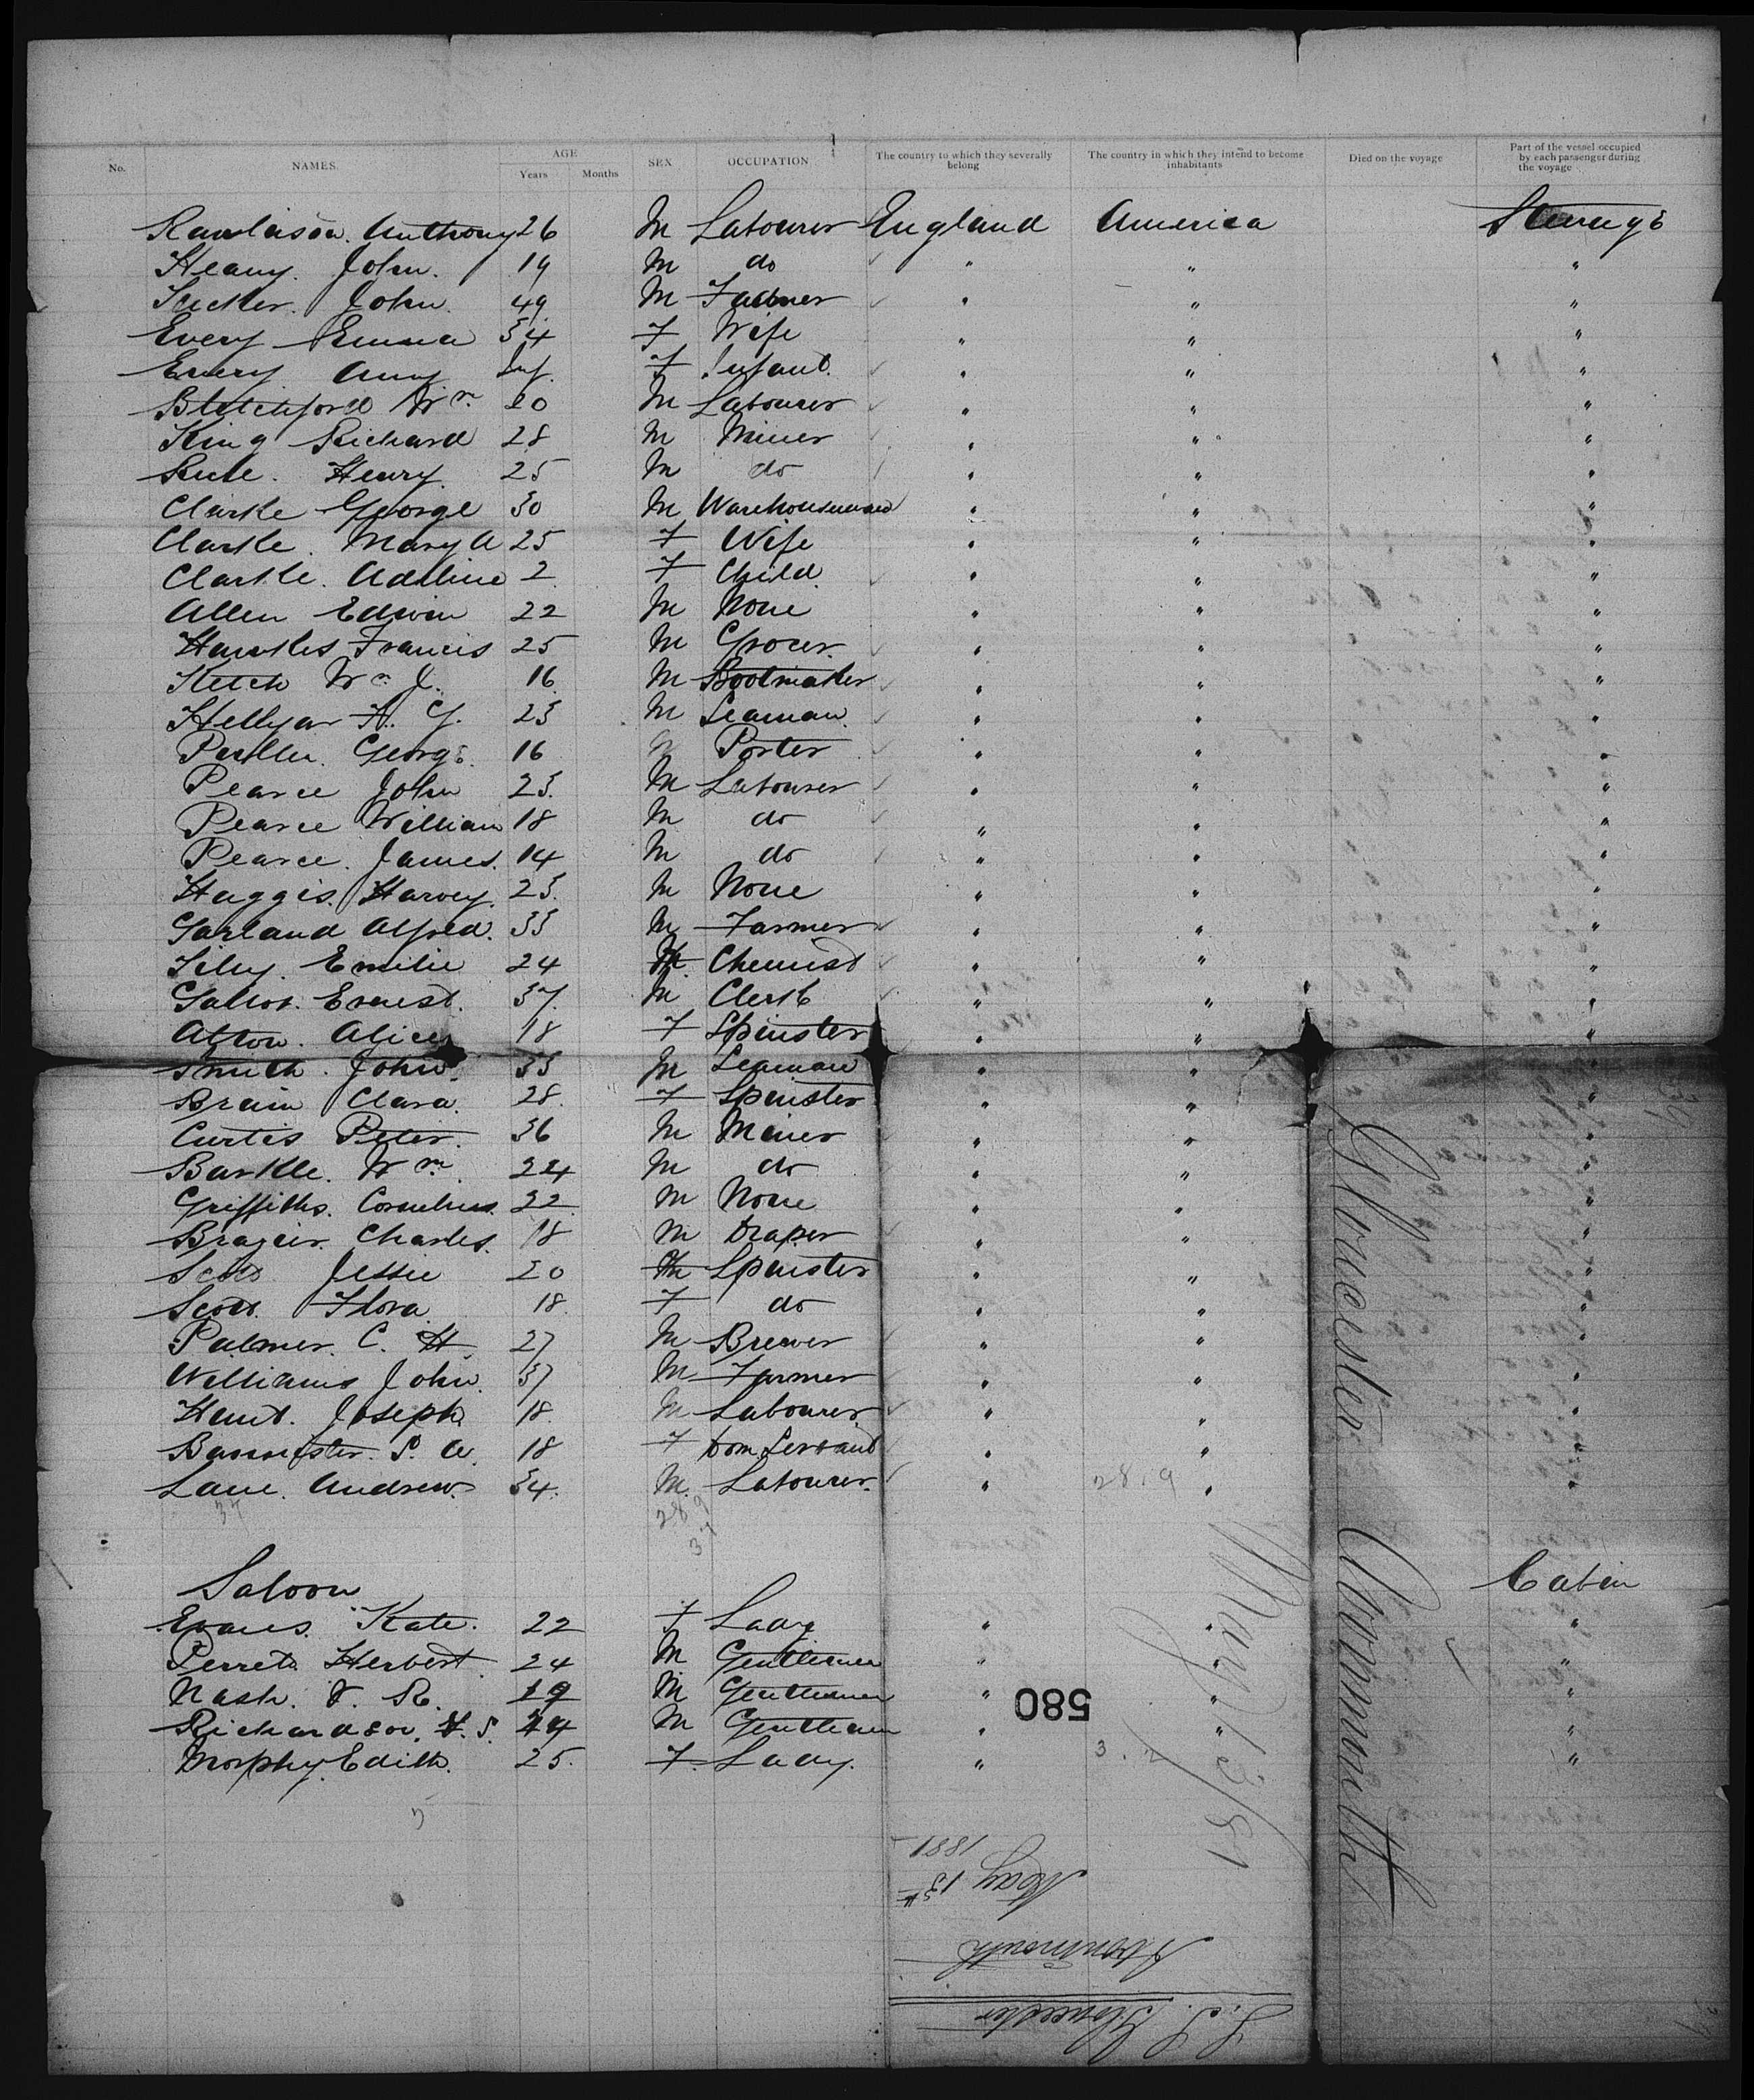 No. NAMES. AGE Years Months SEX OCCUPATION The country to which they severally belong The country in which they intend to become inhabitants Died on the voyage Part of the vessel occupied by each passenger during the voyage
Rawlinson. Anthony 26 M Labourer England America Steerage
Heany. John. 19 M do " " "
Tucker. John. 49. M Farmer " " "
Every Emma 34 F Wife " " "
Every Amy Inf. F Infant. " " "
Bletchford Wm 20 M Labourer " " "
King Richard 28 M Miner " " "
Rule. Henry. 25 M do " " "
Clarke George 30 M Warehouseman " " "
Clarke. Mary A 25 F Wife " " "
Clarke. Adeline 2 F Child " " "
Allen Edwin 22 M None " " "
Hawkes Francis 25 M Grocer. " " "
Ketch Wm J. 16 M Bootmaker " " "
Hellyar A. G. 23 M Seaman. " " "
George. 16 M Porter " " "
Pearce John 23. M Labourer " " "
Pearce William 18 M do " " "
Pearce. James. 14 M do " " "
Haggis. Harvey. 23. M None " " "
Garland Alfred. 33 M Farmer " " "
Emilie 24 Chemist " " "
Ernest. 37. M Clerk " " "
Alice 18 F Spinster " " "
Smith. John. 35 M Seaman " " "
Brain Clara. 28. F Spinster " " "
Curtis Peter. 36 M Miner " " "
Barkle. Wm. 24 M do " " "
Griffiths. Cornelius. 22 M None " " "
Brazier. Charles. 18 M Draper " " "
Scott Jessie 20 Spinster " " "
Scott. Flora 18. F do " " "
Palmer. C. H. 27 M Brewer " " "
Williams John. 37 M Farmer " " "
Hunt. Joseph. 18. M Labourer " " "
Bannister. S. A. 18 F Dom. Servant " " "
Lane. Andrew. 34. M. Labourer. " " "
37 28.9 37 28.9
Saloon Cabin
Evans. Kate. 22 F Lady " " "
Perrett. Herbert 24 M Gentleman " " "
Nash. R. 19 M Gentleman " " "
Richardson. H. S. 24 M Gentleman " " "
Morphy. Edith. 25. F. Lady. " " "
580
3.2
May 13/81
Gloucester Avonmouth
S.S. Gloucester
Avonmouth
May 13th
1881